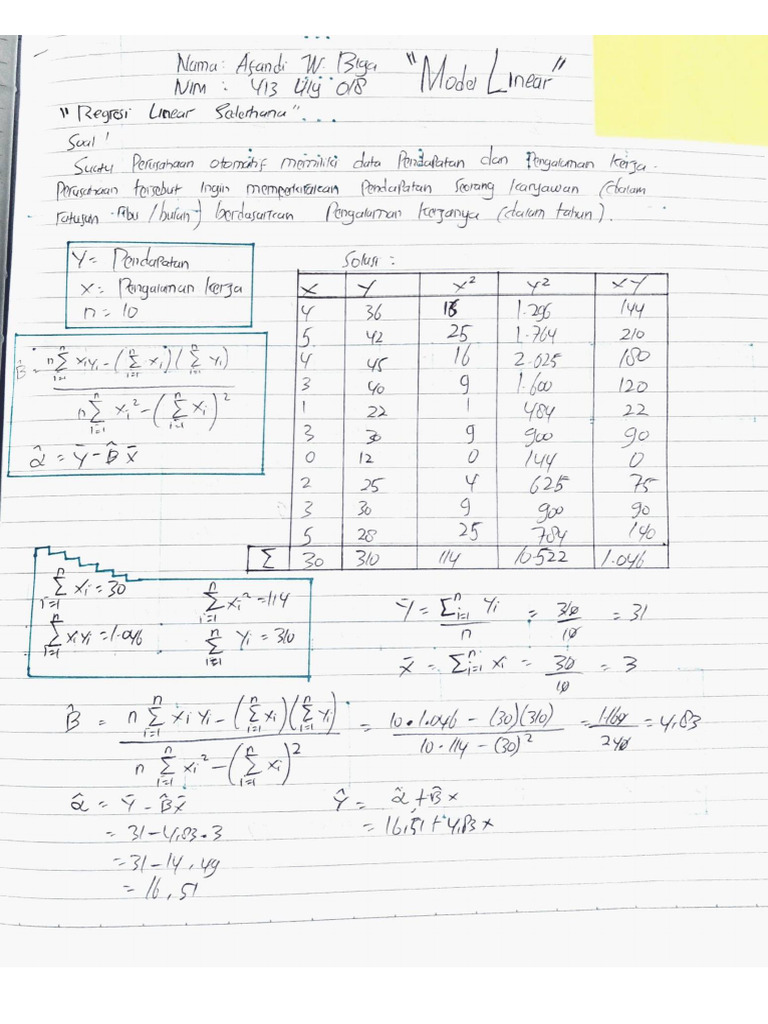 Nama: Afandi W. Biga "Model Linear"
NIM : 413 419 018
"Regresi Linear Sederhana"...
Soal!
Suatu Perusahaan otomatif memiliki data Pendapatan dan Pengalaman kerja.
Perusahaan tersebut ingin memperkirakan Pendapatan seorang karyawan (dalam
ratusan ribu/bulan) berdasarkan Pengalaman kerjanya (dalam tahun).
Y = Pendapatan
X = Pengalaman kerja
n = 10
B̂ = (n Σⁿᵢ₌₁ xᵢyᵢ - (Σⁿᵢ₌₁ xᵢ)(Σⁿᵢ₌₁ yᵢ)) / (n Σⁿᵢ₌₁ xᵢ² - (Σⁿᵢ₌₁ xᵢ)²)
α̂ = Ȳ - B̂ X̄
Solusi :
X Y X² Y² XY
4 36 16 1.296 144
5 42 25 1.764 210
4 45 16 2.025 180
3 40 9 1.600 120
1 22 1 484 22
3 30 9 900 90
0 12 0 144 0
2 25 4 625 75
3 30 9 900 90
5 28 25 784 140
Σ 30 310 114 10.522 1.046
Σⁿᵢ₌₁ xᵢ = 30 Σⁿᵢ₌₁ xᵢ² = 114
Σⁿᵢ₌₁ xᵢyᵢ = 1.046 Σⁿᵢ₌₁ yᵢ = 310
Ȳ = Σⁿᵢ₌₁ yᵢ / n = 310/10 = 31
X̄ = Σⁿᵢ₌₁ xᵢ = 30/10 = 3
B̂ = (n Σⁿᵢ₌₁ xᵢyᵢ - (Σⁿᵢ₌₁ xᵢ)(Σⁿᵢ₌₁ yᵢ)) / (n Σⁿᵢ₌₁ xᵢ² - (Σⁿᵢ₌₁ xᵢ)²) = (10 · 1.046 - (30)(310)) / (10 · 114 - (30)²) = 1160/240 = 4,83
α̂ = Ȳ - B̂X̄
= 31 - 4,83 · 3
= 31 - 14,49
= 16,51
Ŷ = α̂ + B̂x
= 16,51 + 4,83 x